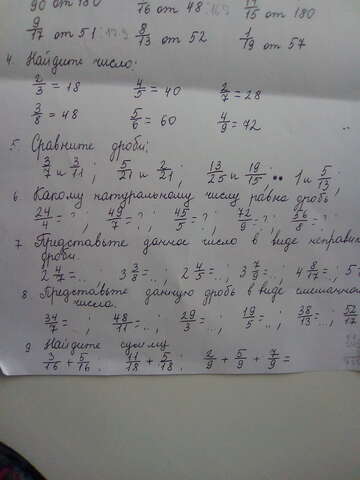 90 от 180 16 от 48 15 от 180
9/17 от 51 8/13 от 52 1/19 от 57
4. Найдите число:
2/3 = 18 4/5 = 40 2/7 = 28
3/8 = 48 5/6 = 60 4/9 = 72
5. Сравните дроби:
3/7 и 3/11; 5/21 и 2/21; 13/25 и 19/15 1 и 5/13;
6. Какому натуральному числу равна дробь
24/4 = ?; 49/7 = ?; 45/5 = ?; 72/9 = ?; 56/8 = ?
7. Представьте данное число в виде неправил
дроби.
2 4/7 = ..; 3 3/8 = ..; 2 4/5 = ..; 3 7/9 = ..; 4 8/17 = ..; 5
8. Представьте данную дробь в виде смешанного
числа.
34/7 = ..; 48/11 = ..; 29/3 = ..; 19/5 = ..; 38/13 = ..; 52/17
9. Найдите сумму
3/16 + 5/16. 11/18 + 5/18. 2/9 + 5/9 + 7/9 =